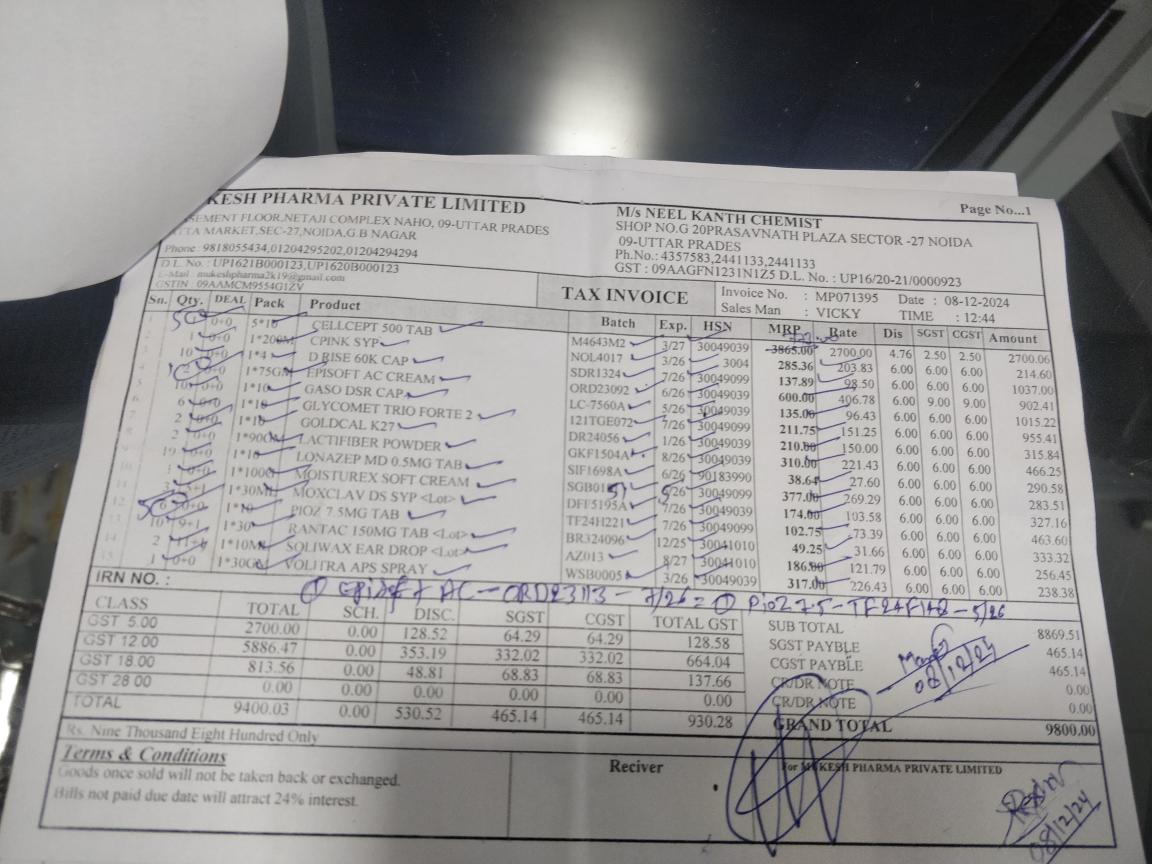 KESH PHARMA PRIVATE LIMITED
SEMENT FLOOR,NETAJI COMPLEX NAHO, 09-UTTAR PRADES
TTA MARKET,SEC-27,NOIDA,G.B NAGAR
Phone : 9818055434,01204295202,01204294294
D.L. No. : UP1621B000123,UP1620B000123
E-Mail : mukeshpharma2k19@gmail.com
GSTIN : 09AAMCM9554G1ZV
M/s NEEL KANTH CHEMIST
Page No...1
SHOP NO.G 20PRASAVNATH PLAZA SECTOR -27 NOIDA
09-UTTAR PRADES
Ph.No.: 4357583,2441133,2441133
GST : 09AAGFN1231N1Z5 D.L. No. : UP16/20-21/0000923
TAX INVOICE
Invoice No. : MP071395 Date : 08-12-2024
Sales Man : VICKY TIME : 12:44
Sn. Qty. DEAL Pack Product Batch Exp. HSN MRP Rate Dis SGST CGST Amount
5*10 CELLCEPT 500 TAB M4643M2 3/27 30049039 3865.00 2700.00 4.76 2.50 2.50 2700.06
1*200M CPINK SYP NOL4017 3/26 3004 285.36 203.83 6.00 6.00 6.00 214.60
10 0+0 1*4 D RISE 60K CAP SDR1324 7/26 30049099 137.89 98.50 6.00 6.00 6.00 1037.00
1*75GM EPISOFT AC CREAM ORD23092 6/26 30049039 600.00 406.78 6.00 9.00 9.00 902.41
10 0+0 1*10 GASO DSR CAP LC-7560A 5/26 30049039 135.00 96.43 6.00 6.00 6.00 1015.22
6 0+0 1*10 GLYCOMET TRIO FORTE 2 121TGE072 7/26 30049099 211.75 151.25 6.00 6.00 6.00 955.41
2 0+0 1*10 GOLDCAL K27 DR24056 1/26 30049039 210.00 150.00 6.00 6.00 6.00 315.84
2 0+0 1*90GM LACTIFIBER POWDER GKF1504A 8/26 30049039 310.00 221.43 6.00 6.00 6.00 466.25
1*10 LONAZEP MD 0.5MG TAB SIF1698A 6/26 90183990 38.64 27.60 6.00 6.00 6.00 290.58
1*100G MOISTUREX SOFT CREAM 30049099 377.00 269.29 6.00 6.00 6.00 283.51
1*30ML MOXCLAV DS SYP <Lot> DFF5195A 7/26 30049039 174.00 103.58 6.00 6.00 6.00 327.16
1*10 PIOZ 7.5MG TAB TF24H221 7/26 30049099 102.75 73.39 6.00 6.00 6.00 463.60
9+1 1*30 RANTAC 150MG TAB <Lot> BR324096 12/25 30041010 49.25 31.66 6.00 6.00 6.00 333.32
2 11+1 1*10ML SOLIWAX EAR DROP <Lot> AZ013 8/27 30041010 186.00 121.79 6.00 6.00 6.00 256.45
1 0+0 1*30GM VOLITRA APS SPRAY WSB0005 3/26 30049039 317.00 226.43 6.00 6.00 6.00 238.38
IRN NO. :
AC - ORD23113 - 7/26 = ① Pioz 7.5 - TF24F148 - 5/26
CLASS TOTAL SCH. DISC. SGST CGST TOTAL GST
GST 5.00 2700.00 0.00 128.52 64.29 64.29 128.58
GST 12.00 5886.47 0.00 353.19 332.02 332.02 664.04
GST 18.00 813.56 0.00 48.81 68.83 68.83 137.66
GST 28.00 0.00 0.00 0.00 0.00 0.00 0.00
TOTAL 9400.03 0.00 530.52 465.14 465.14 930.28
SUB TOTAL 8869.51
SGST PAYBLE 465.14
CGST PAYBLE 465.14
CR/DR NOTE 0.00
CR/DR NOTE 0.00
GRAND TOTAL 9800.00
08/12/24
Rs. Nine Thousand Eight Hundred Only
Terms & Conditions
Goods once sold will not be taken back or exchanged.
Bills not paid due date will attract 24% interest.
Reciver
For MUKESH PHARMA PRIVATE LIMITED
08/12/24